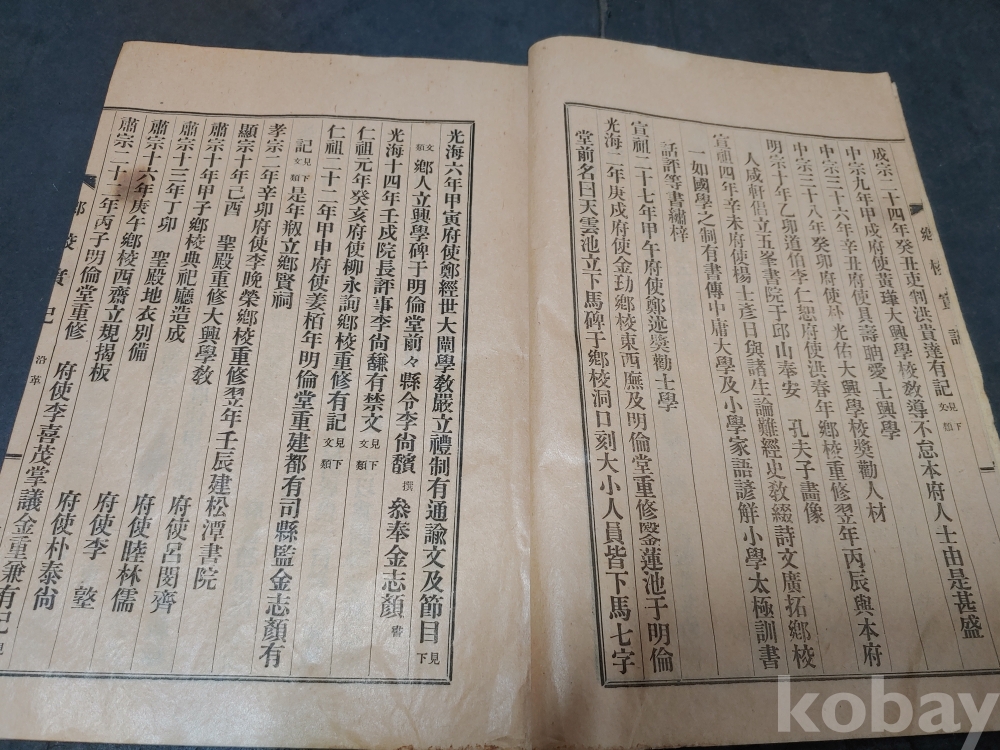 鄕校實記
成宗二十四年癸丑吏判洪貴達有記見下文類
中宗九年甲戌府使黃瑾大興學校敎導不怠本府人士由是甚盛
中宗三十六年辛丑府使具壽聃愛士興學
中宗三十八年癸卯府使朴光佑大興學校奬勸人材
明宗十年乙卯道伯李仁恕府使洪春年鄕校重修翌年丙辰與本府
人咸軒倡立五峯書院于邱山奉安 孔夫子畵像
宣祖四年辛未府使楊士彦日與諸生論難經史敎綴詩文廣拓鄕校
一如國學之制有書傳中庸大學及小學家語諺解小學太極訓書
話評等書繡梓
宣祖二十七年甲午府使鄭述奬勸士學
光海二年庚戌府使金玏鄕校東西廡及明倫堂重修鑿蓮池于明倫
堂前名曰天雲池立下馬碑于鄕校洞口刻大小人員皆下馬七字
光海六年甲寅府使鄭經世大闡學敎嚴立禮制有通諭文及節目見下
文類 鄕人立興學碑于明倫堂前々縣令李尙馪撰 叅奉金志顔書
光海十四年壬戌院長評事李尙馦有禁文見下文類
仁祖元年癸亥府使柳永詢鄕校重修有記見下文類
仁祖二十二年甲申府使姜栢年明倫堂重建都有司縣監金志顔有
記見下文類 是年刱立鄕賢祠
孝宗二年辛卯府使李晩榮鄕校重修翌年壬辰建松潭書院
顯宗十年己酉 聖殿重修大興學敎
肅宗十年甲子鄕校典祀廳造成 府使呂閔齊
肅宗十三年丁卯 聖殿地衣別備 府使睦林儒
肅宗十六年庚午鄕校西齋立規揭板 府使李 塾
肅宗二十二年丙子明倫堂重修 府使朴泰尙
府使李喜茂掌議金重兼有記見
鄕校實記 沿革
kobay